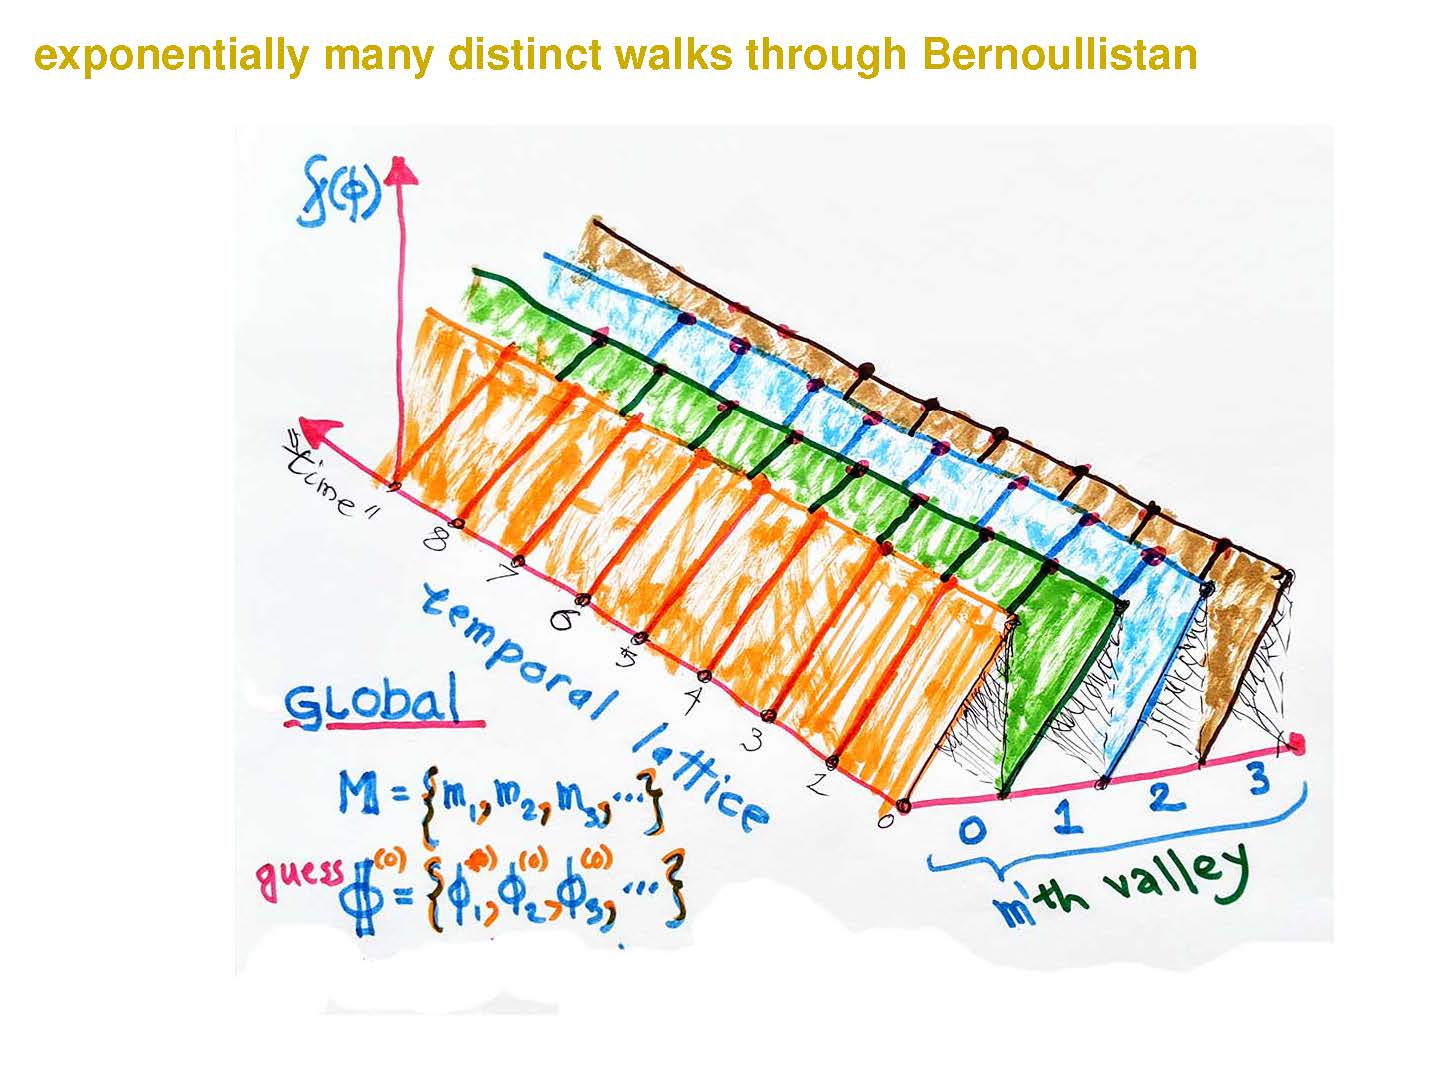 exponentially many distinct walks through Bernoullistan
f(ϕ)
"time"
8
7
6
5
4
3
2
0
temporal lattice
0 1 2 3
m'th valley
GLObal
M = {m₁, m₂, m₃, ...}
guess Φ⁽⁰⁾ = {ϕ₁⁽⁰⁾, ϕ₂⁽⁰⁾, ϕ₃⁽⁰⁾, ...}